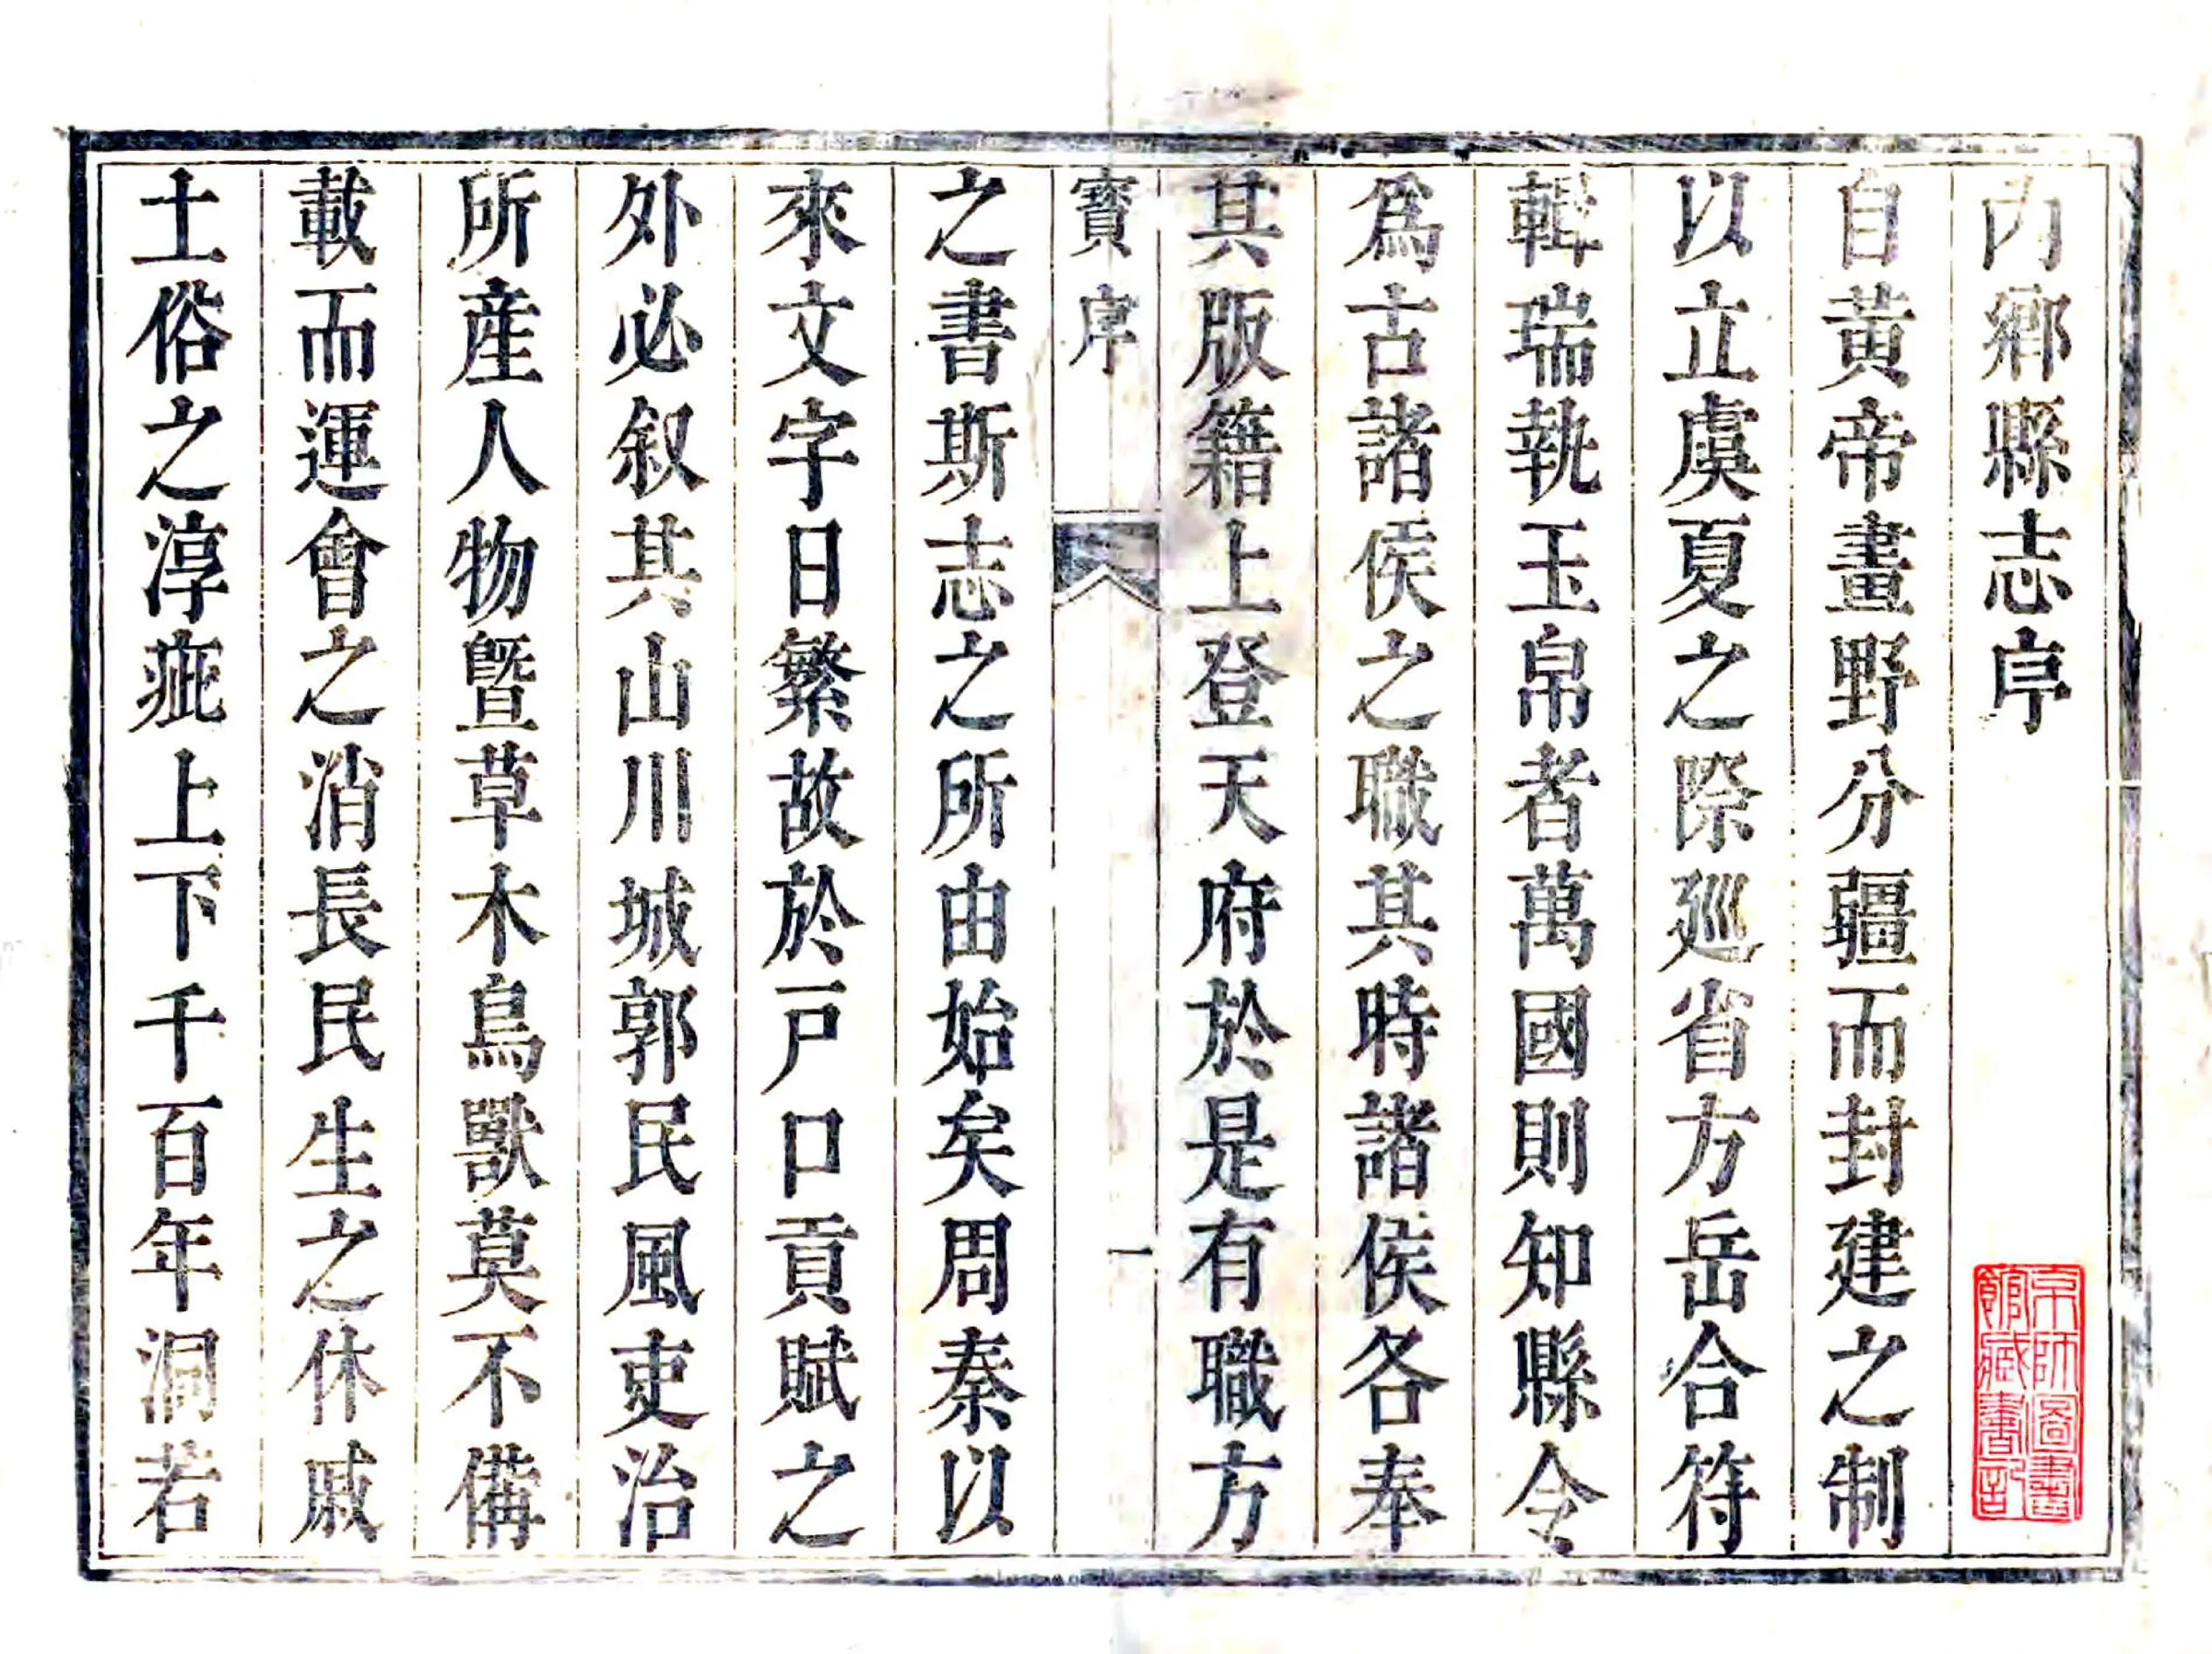 內鄉縣志序
自黃帝畫野分疆而封建之制
以立虞夏之際廵省方岳合符
輯瑞執玉帛者萬國則知縣令
爲古諸侯之職其時諸侯各奉
其版籍上登天府於是有職方
寳序
一
之書斯志之所由始矣周秦以
來文字日繁故於戸口貢賦之
外必叙其山川城郭民風吏治
所産人物暨草木鳥獸莫不備
載而運會之消長民生之休戚
土俗之淳疵上下千百年洞若
京師圖書
館藏書記